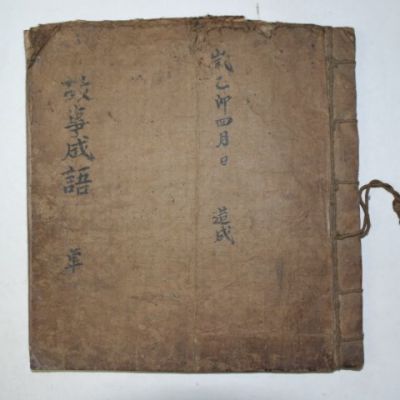 歲乙卯四月日 造成
故事成語 單